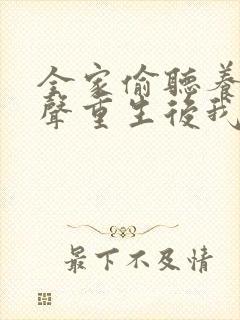 全家偷聽養
聲重生後我
最下不及情